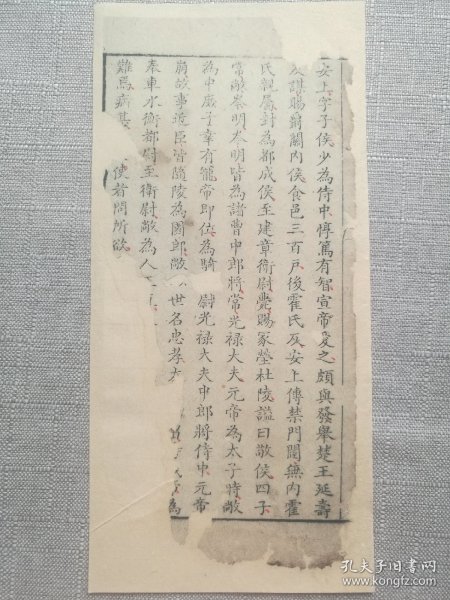 安上字子侯少為侍中惇篤有智宣帝愛之頗與發舉楚王延壽
反謀賜爵關內侯食邑三百戶後霍氏反安上傳禁門闥無內霍
氏親屬封為都成侯至建章衛尉薨賜冢塋杜陵謚曰敬侯四子
常敞岑明岑明皆為諸曹中郎將常光祿大夫元帝為太子時敞
為中庶子幸有寵帝即位為騎 尉光祿大夫中郎將侍中元帝
崩故事近臣皆隨陵為園郎敞 世名忠孝 為
奉車水衡都尉至衛尉敞為人
難焉病甚 使者問所欲
孔夫子旧书网
www.kongfz.com